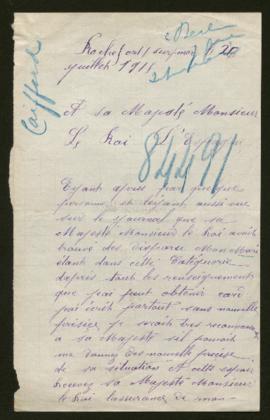 Caifford
2 Berlin
Rochefort sur mer 20
juillet 1915
A sa Majesté Monsieur
Le Roi d'Espagne
84491
Eyant apris par quelque
persone et leyant aussi vue
sur le journeau que sa
Majesté Monsieur le Roi avait
trouvé des disparue Mon Mari
étant dans cette Catégorie
daprès tout les renseignements
que jai peut obtenir card
jai écrit partout sans nouvelle
précise je serait très reconaisan
a sa Majesté sil pouvait
me donner des nouvelle précise
de sa situation et cette espoir
Recevez sa Majesté Monsieur
le Roi lassurance de mon